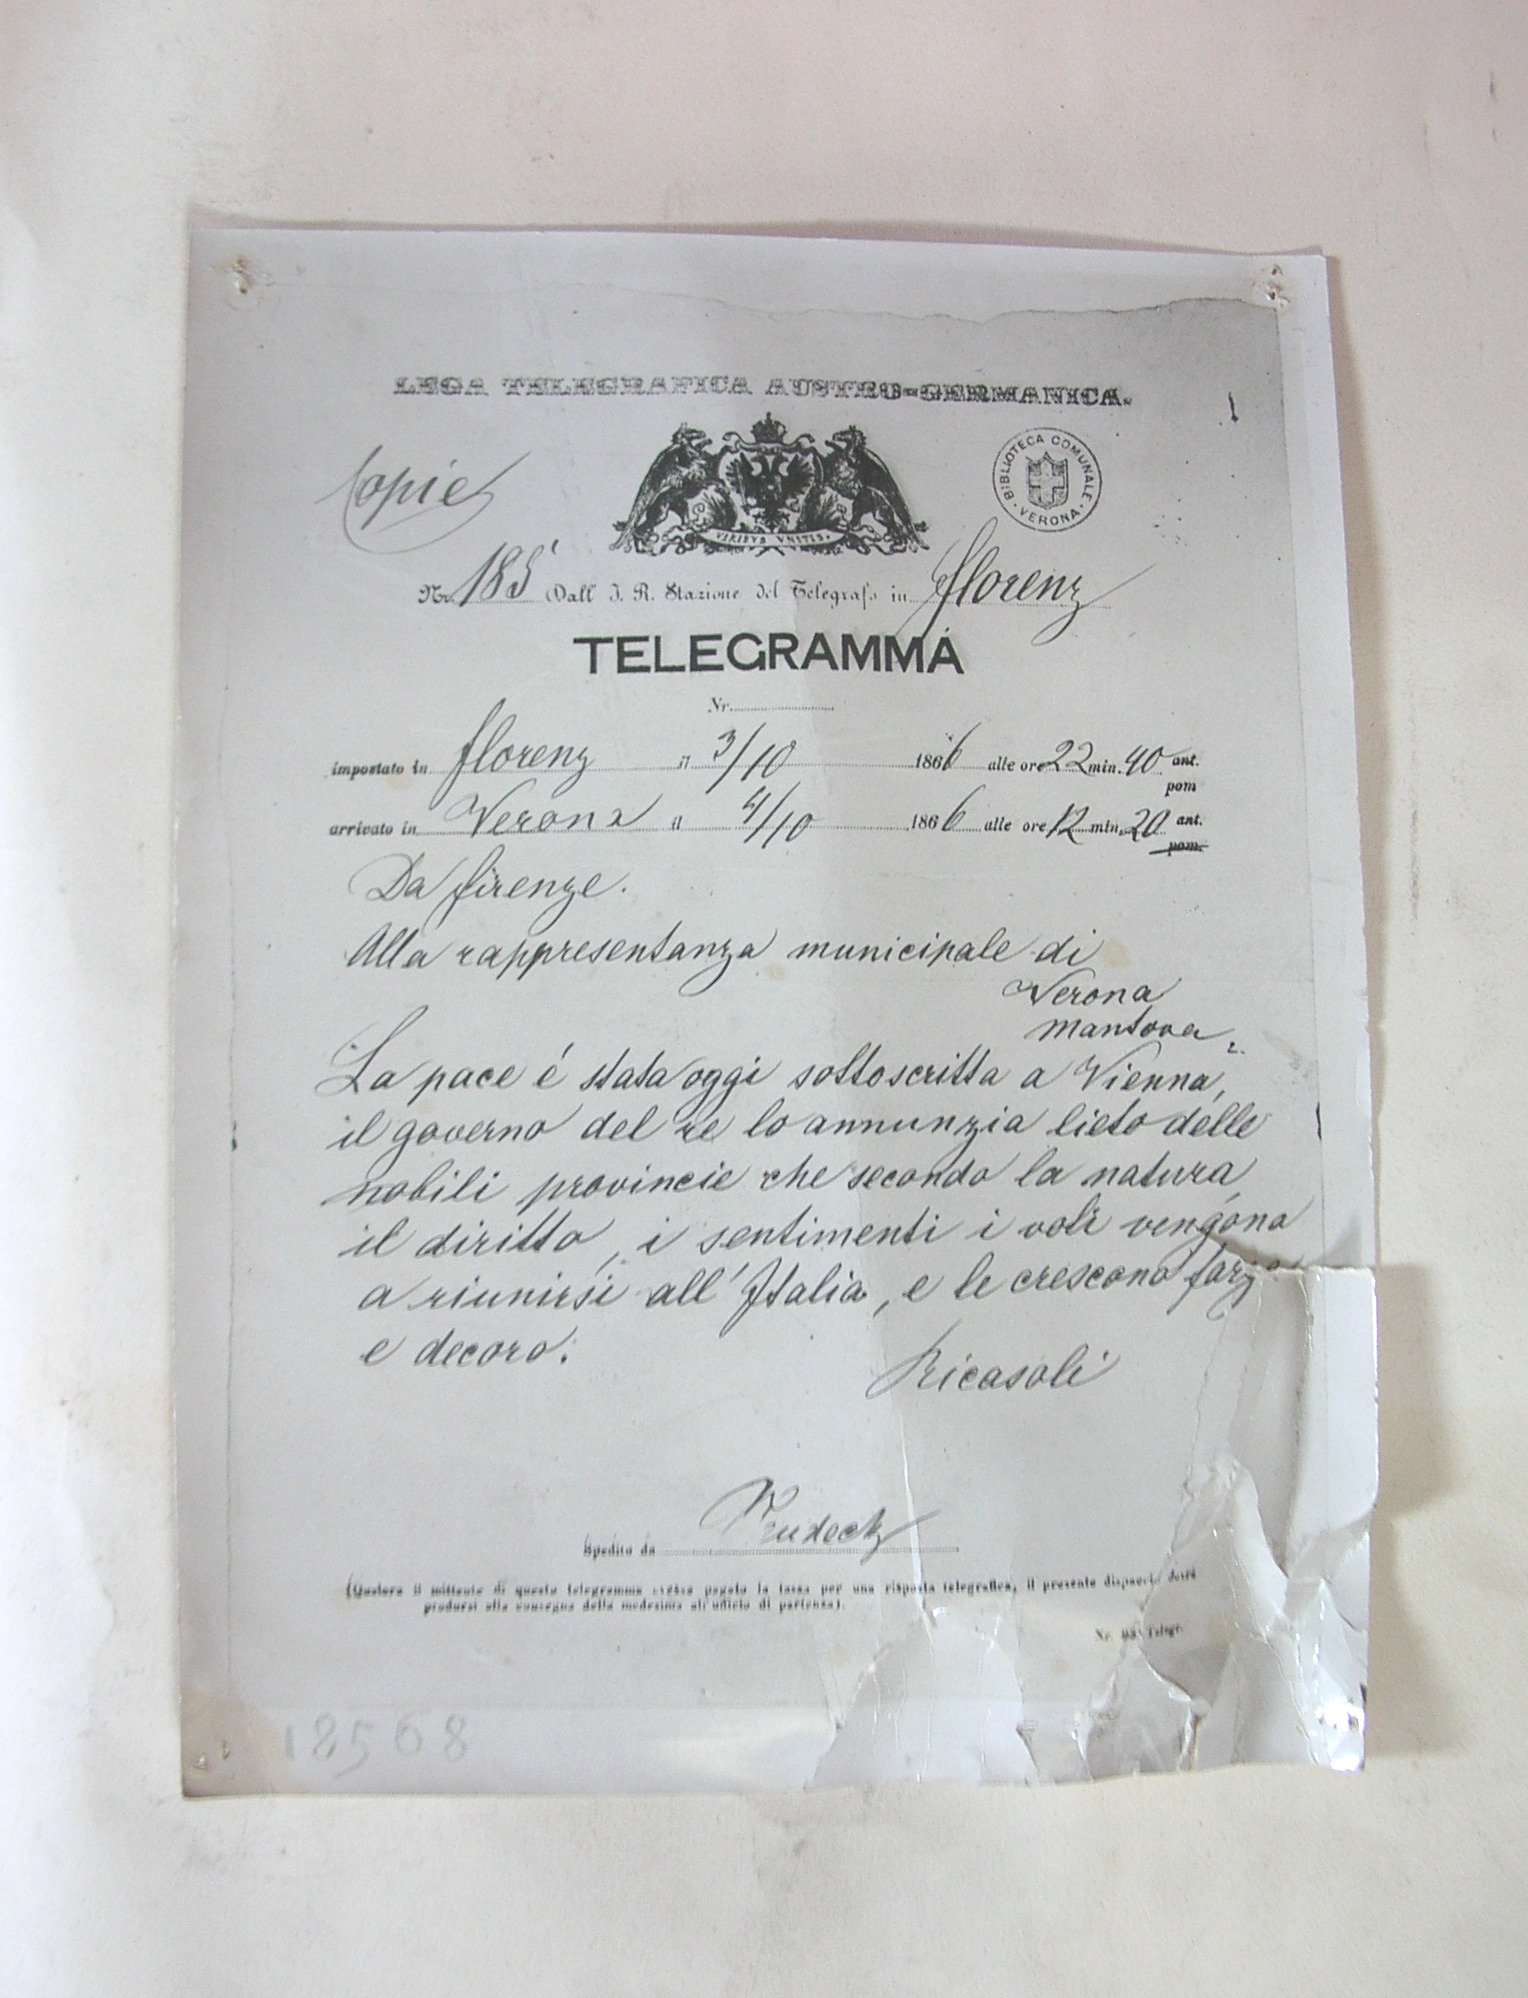 LEGA TELEGRAFICA AUSTRO-GERMANICA.
Copie
VIRIBVS VNITIS.
BIBLIOTECA COMUNALE · VERONA ·
Nr. 185 Dall' I. R. Stazione del Telegrafo in Florenz
TELEGRAMMA
Nr.
impostato in Florenz il 3/10 1866 alle ore 22 min. 40 ant.
pom
arrivato in Verona il 4/10 1866 alle ore 12 min. 20 ant.
pom.
Da Firenze.
Alla rappresentanza municipale di
Verona
Mantova
La pace é stata oggi sottoscritta a Vienna,
il governo del re lo annunzia lieto delle
nobili provincie che secondo la natura,
il diritto, i sentimenti i voti vengono
a riunirsi all' Italia, e le crescono forza
e decoro.
Ricasoli
Spedito da
(Qualora il mittente di questo telegramma avesse pagato la tassa per una risposta telegrafica, il presente dispaccio dovrà
prodursi alla consegna della medesima all'ufficio di partenza).
Nr. Telegr.
18568